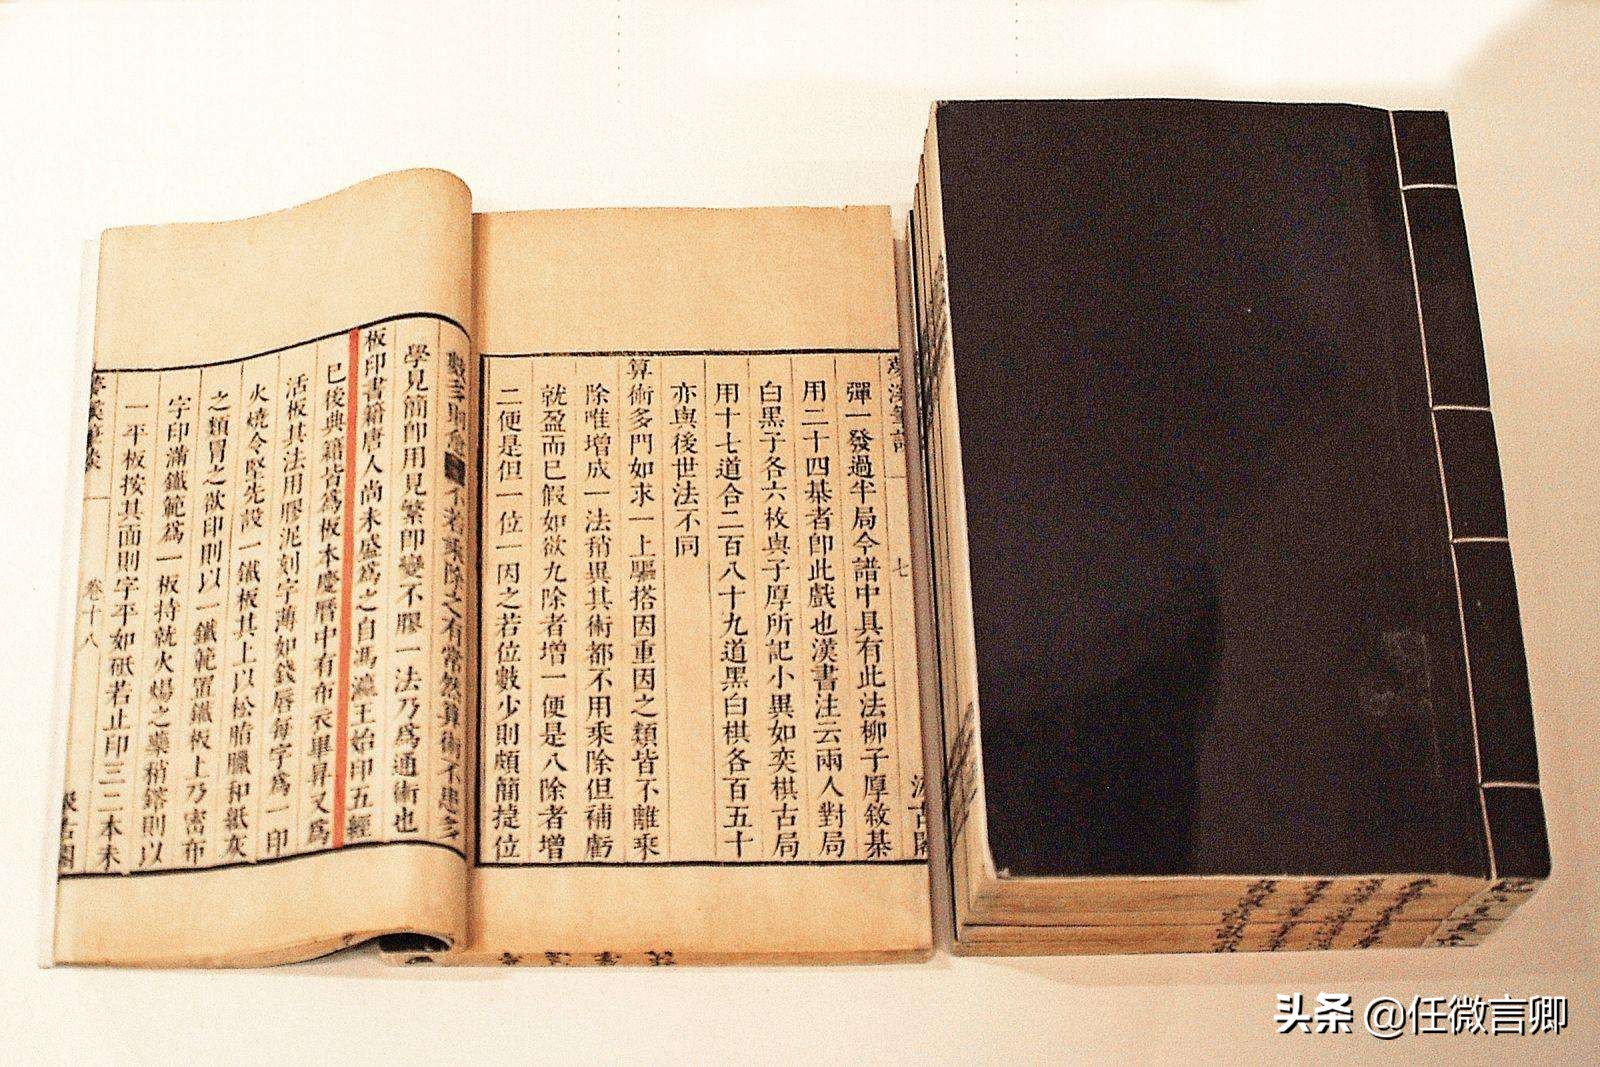 彈一發過半局今譜中具有此法柳子厚敘棊
用二十四棊者即此戲也漢書注云兩人對局
白黑子各六枚與子厚所記小異如奕棋古局
用十七道合二百八十九道黑白棋各百五十
亦與後世法不同
算術多門如求一上驅搭因重因之類皆不離乘
除唯增成一法稍異其術都不用乘除但補虧
就盈而已假如欲九除者增一便是八除者增
二便是但一位一因之若位數少則頗簡捷位
數多則愈不若乘除之有常然算術不患多
學見簡即用見繁即變不膠一法乃為通術也
板印書籍唐人尚未盛為之自馮瀛王始印五經
已後典籍皆為板本慶曆中有布衣畢昇又為
活板其法用膠泥刻字薄如錢唇每字為一印
火燒令堅先設一鐵板其上以松脂臘和紙灰
之類冒之欲印則以一鐵範置鐵板上乃密布
字印滿鐵範為一板持就火煬之藥稍鎔則以
一平板按其面則字平如砥若止印三二本未
夢溪筆談
卷十八
汲古閣
头条 @任微言卿